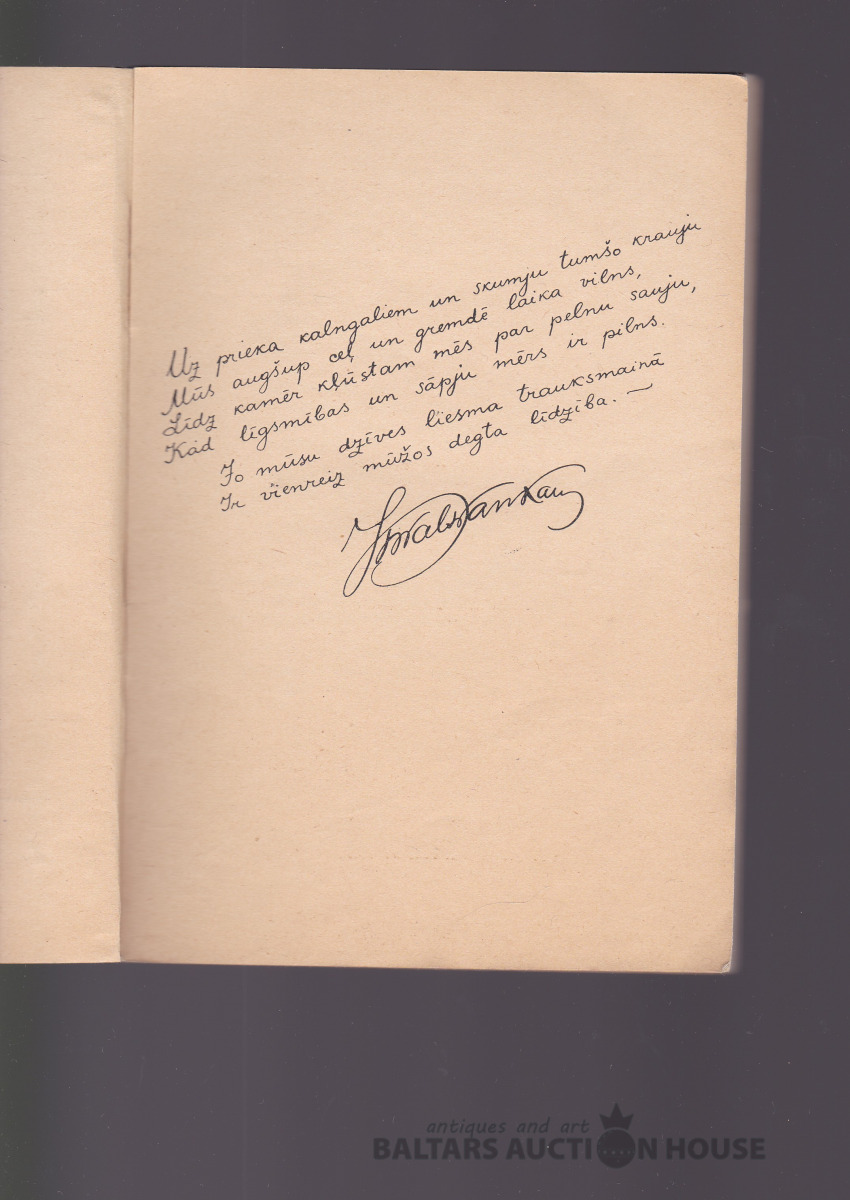 Uz prieka kalngaliem un skumju tumšo krauju
Mūs augšup ceļ un gremdē laika vilns,
Līdz kamēr kļūstam mēs par pelnu sauju,
Kad līgsmības un sāpju mērs ir pilns.
Jo mūsu dzīves liesma trauksmainā
Ir vienreiz mūžos degta līdzība. —
antiques and art
BALTARS AUCTION HOUSE